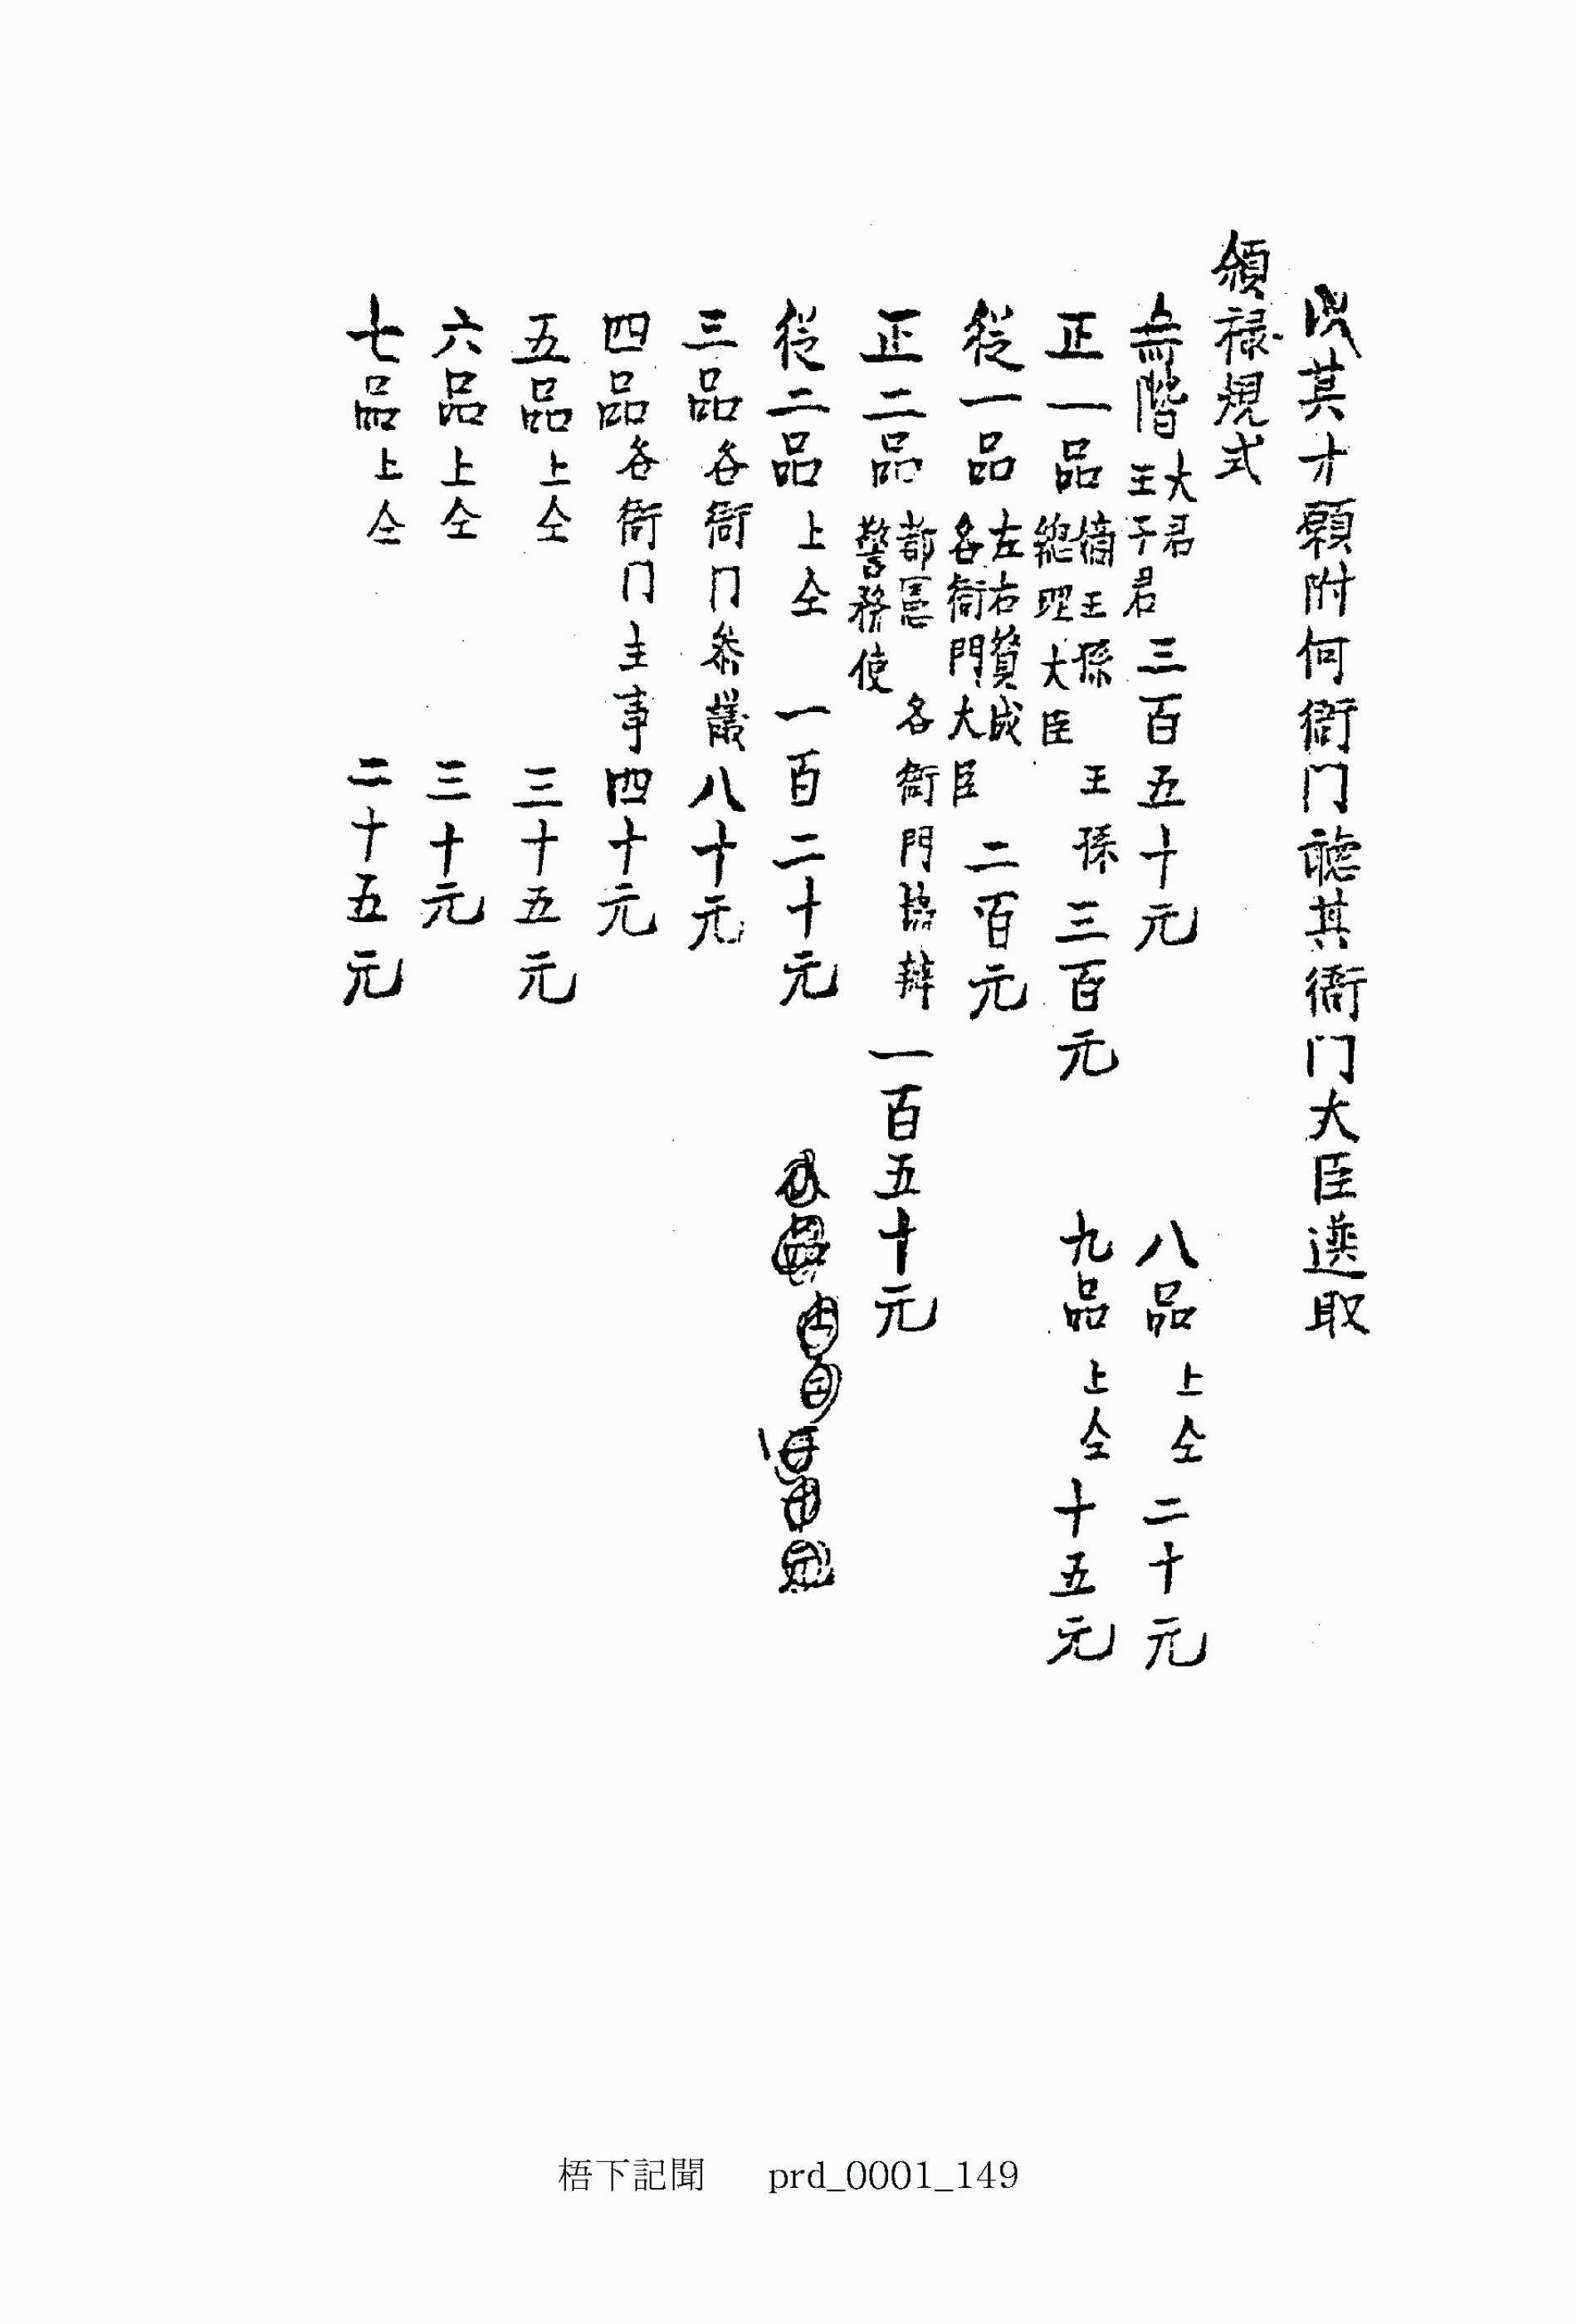 其才願附何衙门聽其衙门大臣選取
領祿規式
無階 大君 王子君 三百五十元
八品 上仝 二十元
正一品 嫡王孫 總理大臣 王孫 三百元
九品 上仝 十五元
從一品 左右贊成 各衙門大臣 二百元
正二品 都憲 警務使 各衙門協辦 一百五十元
從二品 上仝 一百二十元
三品 各衙门參議 八十元
四品 各衙门主事 四十元
五品 上仝 三十五元
六品 上仝 三十元
七品 上仝 二十五元
梧下記聞 prd_0001_149